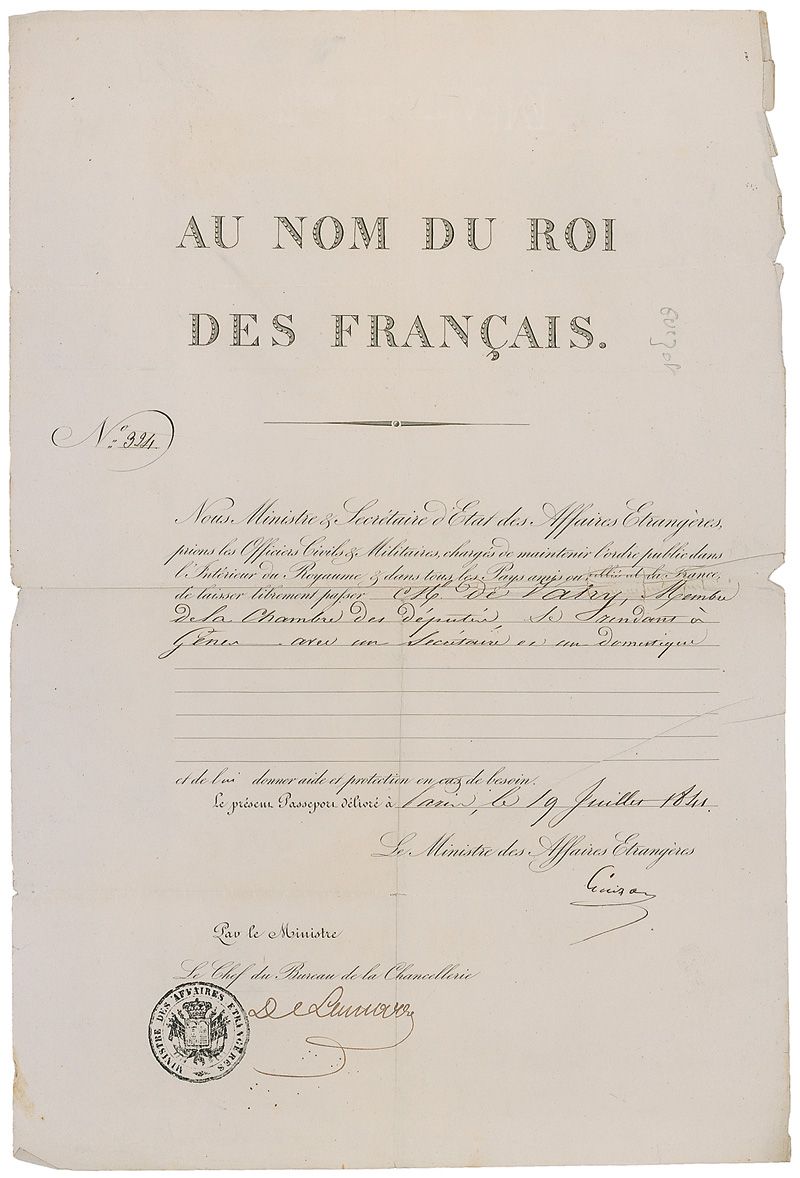 AU NOM DU ROI
DES FRANÇAIS.
Guizot
N.º 324
Nous Ministre & Secrétaire d'Etat des Affaires Etrangères,
prions les Officiers Civils & Militaires, chargés de maintenir l'ordre public dans
l'Intérieur du Royaume, & dans tous les Pays amis ou alliés de la France,
de laisser librement passer M. de Vatry, Membre
de la Chambre des députés, se rendant à
Gênes avec un Secrétaire et un domestique
et de lui donner aide et protection en cas de besoin.
Le présent Passeport délivré à Paris, le 19 Juillet 1841.
Le Ministre des Affaires Etrangères
Guizot
Par le Ministre
Le Chef du Bureau de la Chancellerie
MINISTRE DES AFFAIRES ETRANGERES